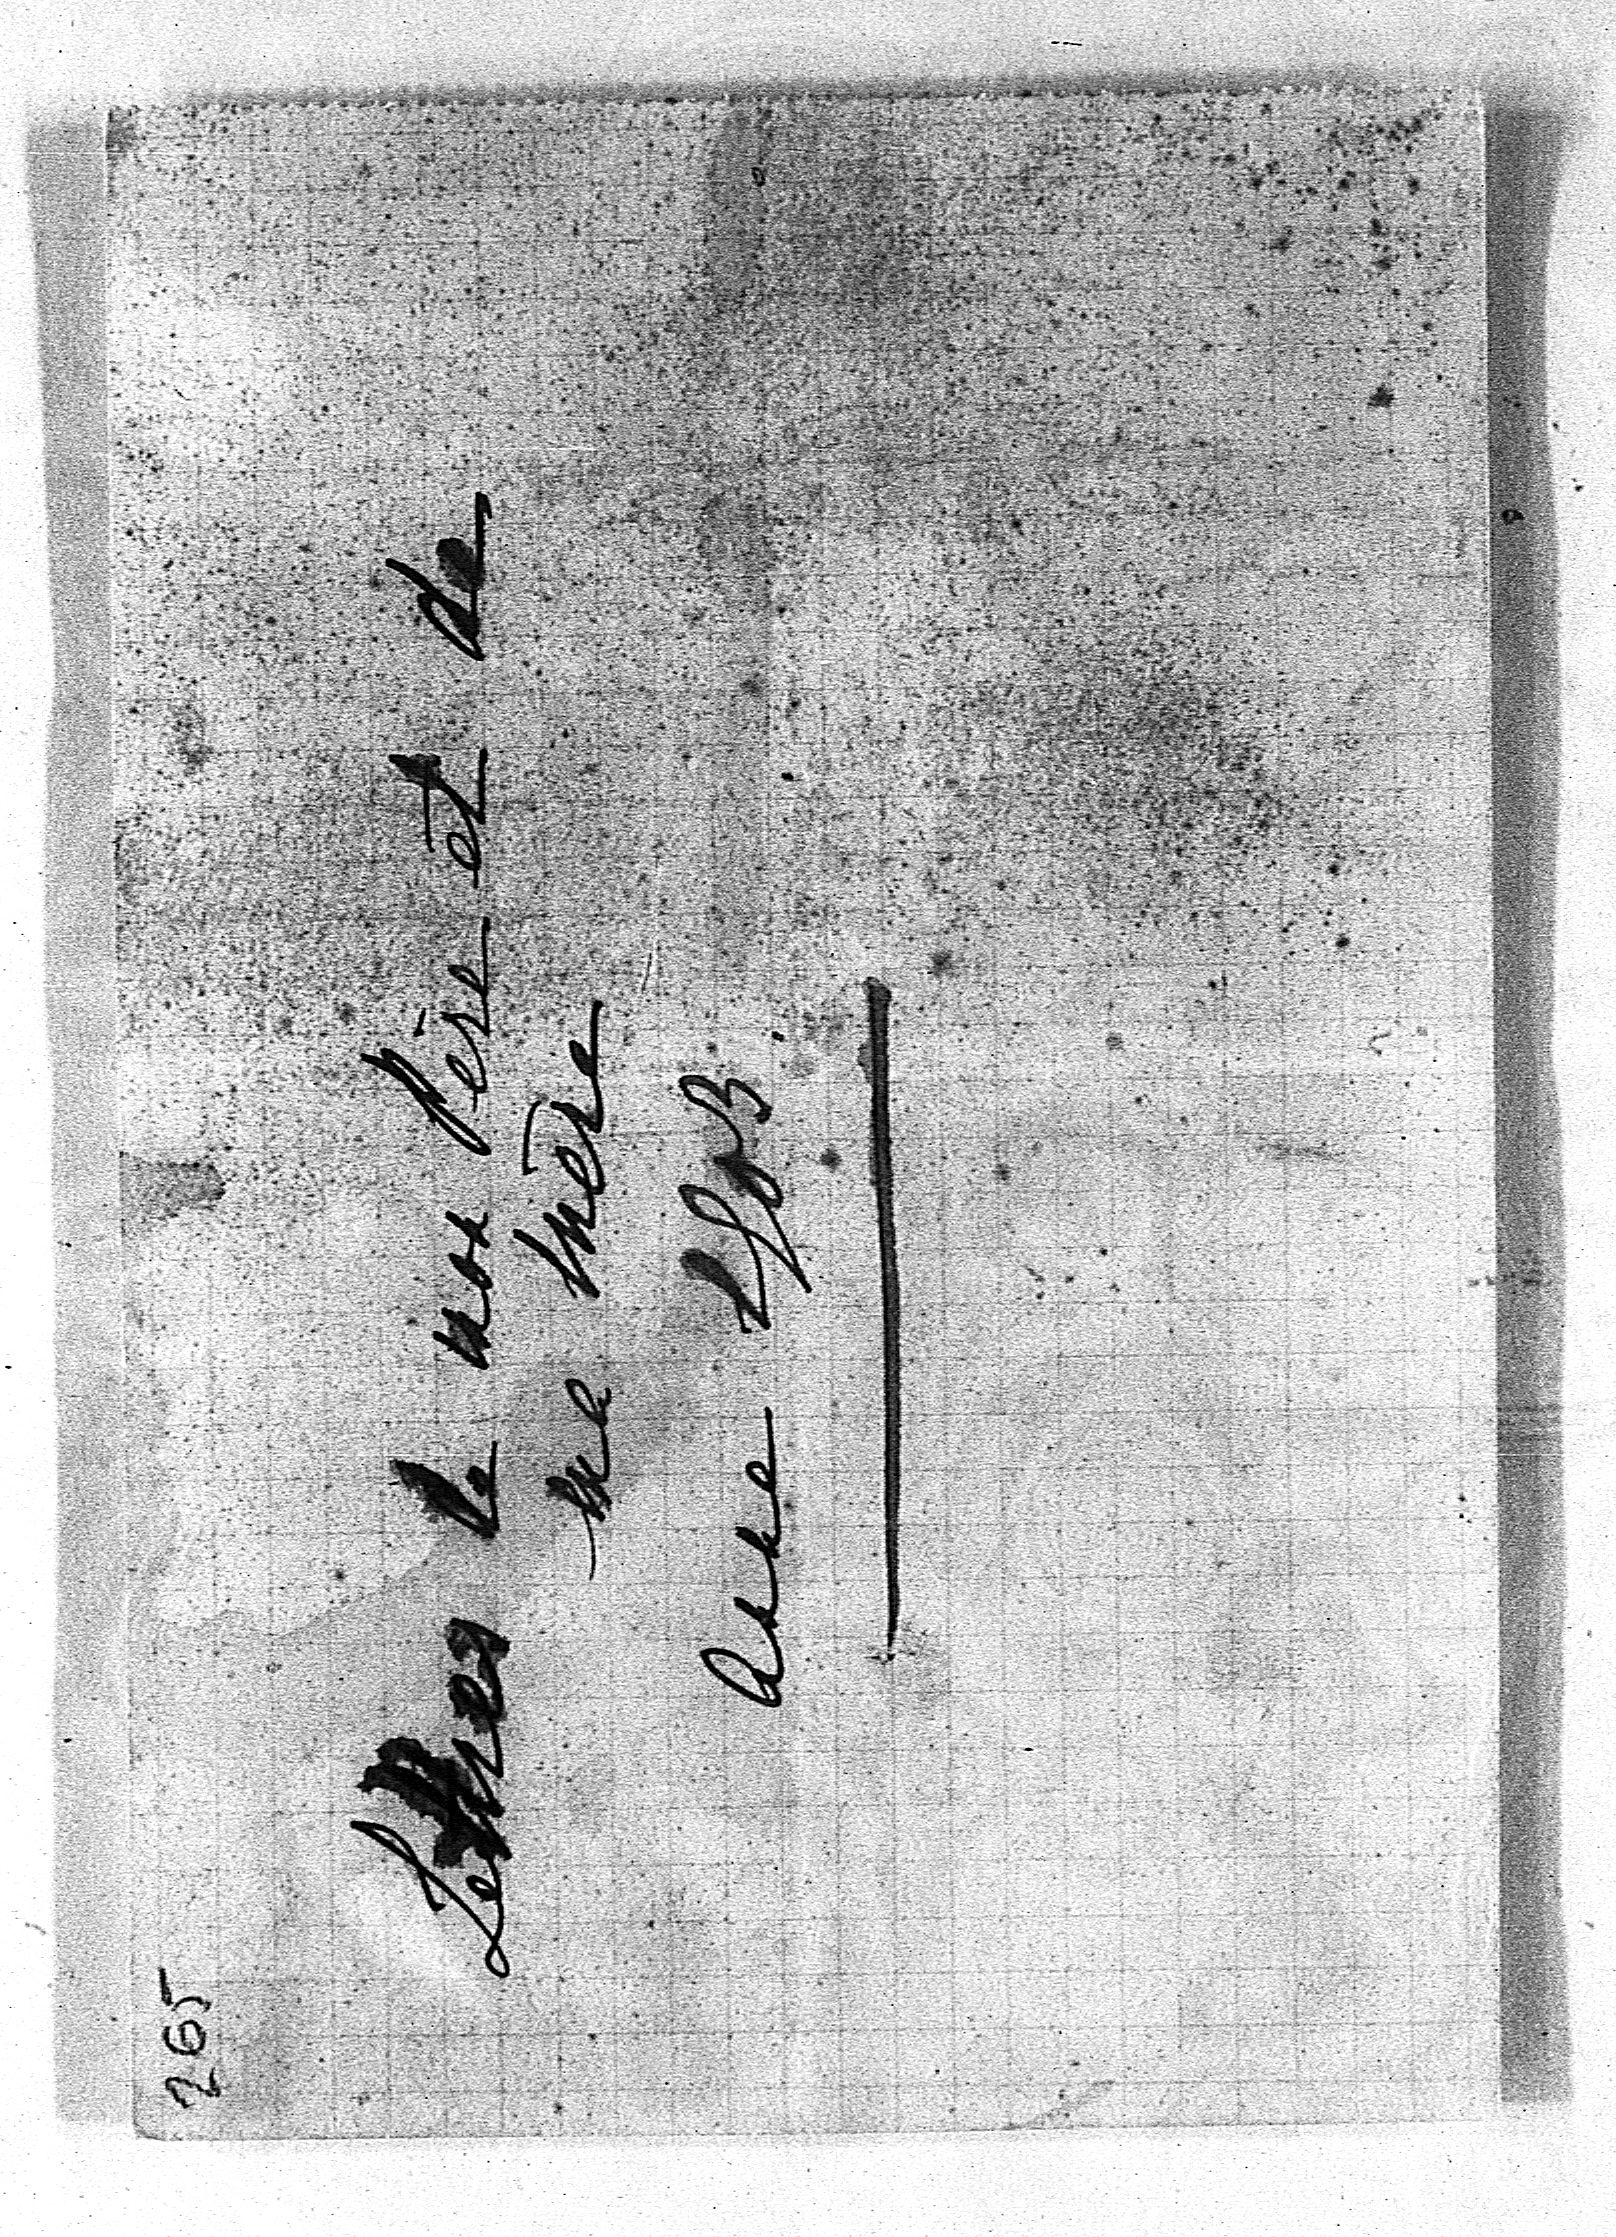 265
Lettres de mon Père et de
ma Mère
Année 1903